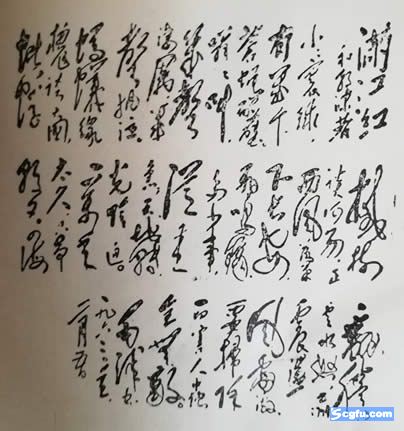 满江红
和郭沫若
小小寰球
有几个
苍蝇碰壁
嗡嗡叫
几声
凄厉几
声抽泣
蚂蚁缘
槐夸大国
蚍蜉
撼树
谈何易正
西风落叶
下长安
飞鸣镝
多少事
从来
急天地转
光阴迫
一万年
太久只争
朝夕四海
翻腾
云水怒五洲
震荡
风雷激
要扫除
一切害人虫
全无敌
一九六三年
二月五日
Scgfu.com